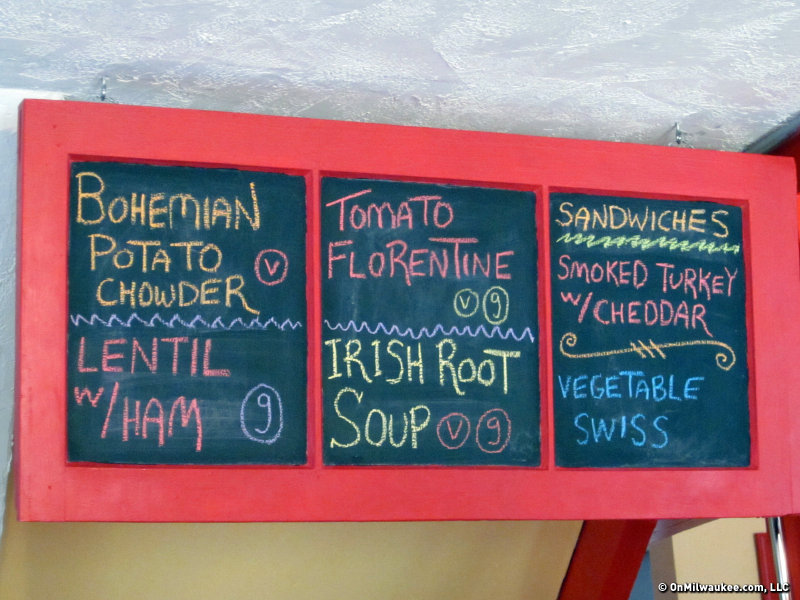 BOHEMIAN
POTATO
CHOWDER v
LENTIL
w/HAM g
TOMATO
FLORENTINE
v g
IRISH ROOT
SOUP v g
SANDWICHES
SMOKED TURKEY
w/CHEDDAR
VEGETABLE
SWISS
© OnMilwaukee.com, LLC